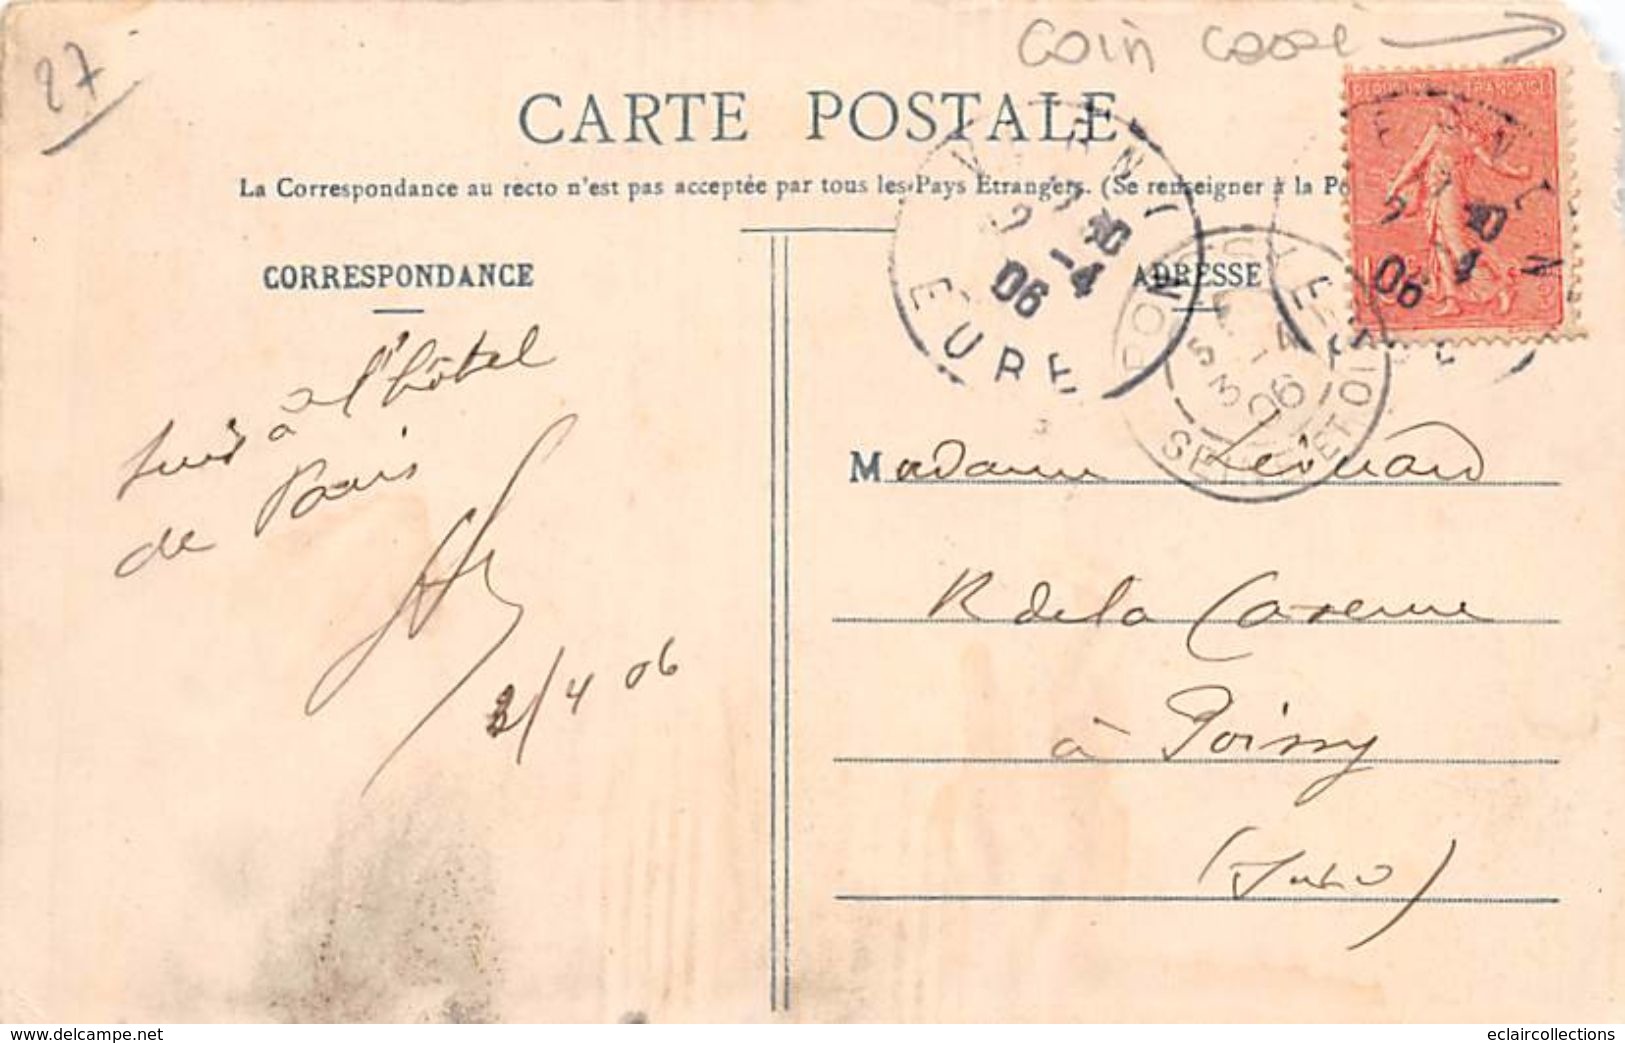 27
coin cassé
CARTE POSTALE
La Correspondance au recto n'est pas acceptée par tous les Pays Etrangers. (Se renseigner à la Po
CORRESPONDANCE
suis à l'hôtel
de Paris
2/4 06
ADRESSE
Madame Léonard
R de la Caserne
à Poissy
REPUBLIQUE FRANÇAISE
VERNON
2 -4
06
EURE
3 -4
06
SEINE ET OISE
www.delcampe.net
eclaircollections